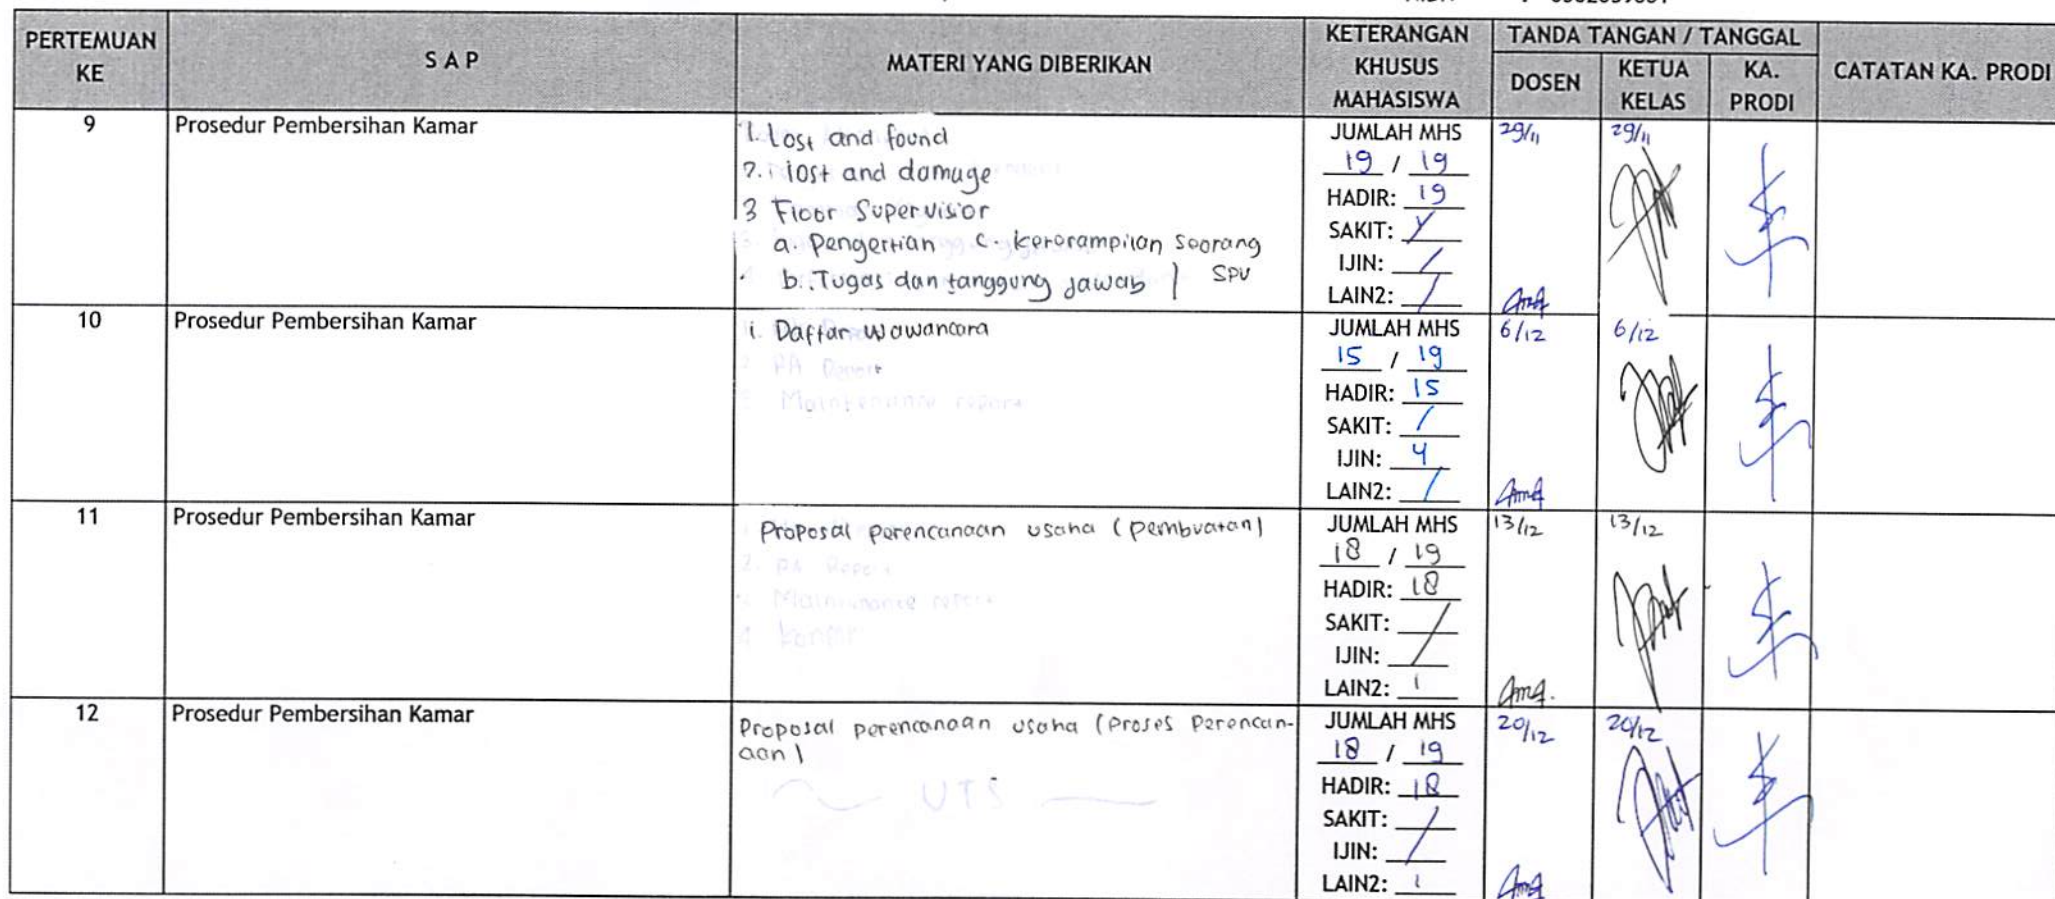 PERTEMUAN KE
S A P
MATERI YANG DIBERIKAN
KETERANGAN KHUSUS MAHASISWA
TANDA TANGAN / TANGGAL
DOSEN
KETUA KELAS
KA. PRODI
CATATAN KA. PRODI
9
Prosedur Pembersihan Kamar
1. Lost and found
2. lost and damage
3 Floor Supervisior
a. Pengertian c. keterampilan seorang
b. Tugas dan tanggung jawab | SPV
JUMLAH MHS
19 / 19
HADIR: 19
SAKIT: /
IJIN: /
LAIN2: /
29/11
29/11
10
Prosedur Pembersihan Kamar
1. Daftar Wawancara
2 PA Report
3 Maintenance report
JUMLAH MHS
15 / 19
HADIR: 15
SAKIT: /
IJIN: 4
LAIN2: /
6/12
6/12
11
Prosedur Pembersihan Kamar
Proposal perencanaan usaha (pembuatan)
2. PA Report
Maintenance report
4
JUMLAH MHS
18 / 19
HADIR: 18
SAKIT: /
IJIN: /
LAIN2: 1
13/12
13/12
12
Prosedur Pembersihan Kamar
Proposal perencanaan usaha (Proses Perencan-
aan)
UTS
JUMLAH MHS
18 / 19
HADIR: 18
SAKIT: /
IJIN: /
LAIN2: 1
20/12
20/12